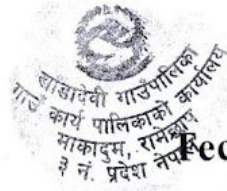 खाँडादेवी गाउँपालिका
गाउँ कार्य पालिकाको कार्यालय
माकादुम, रामेछाप
३ नं. प्रदेश नेपाल
Fec